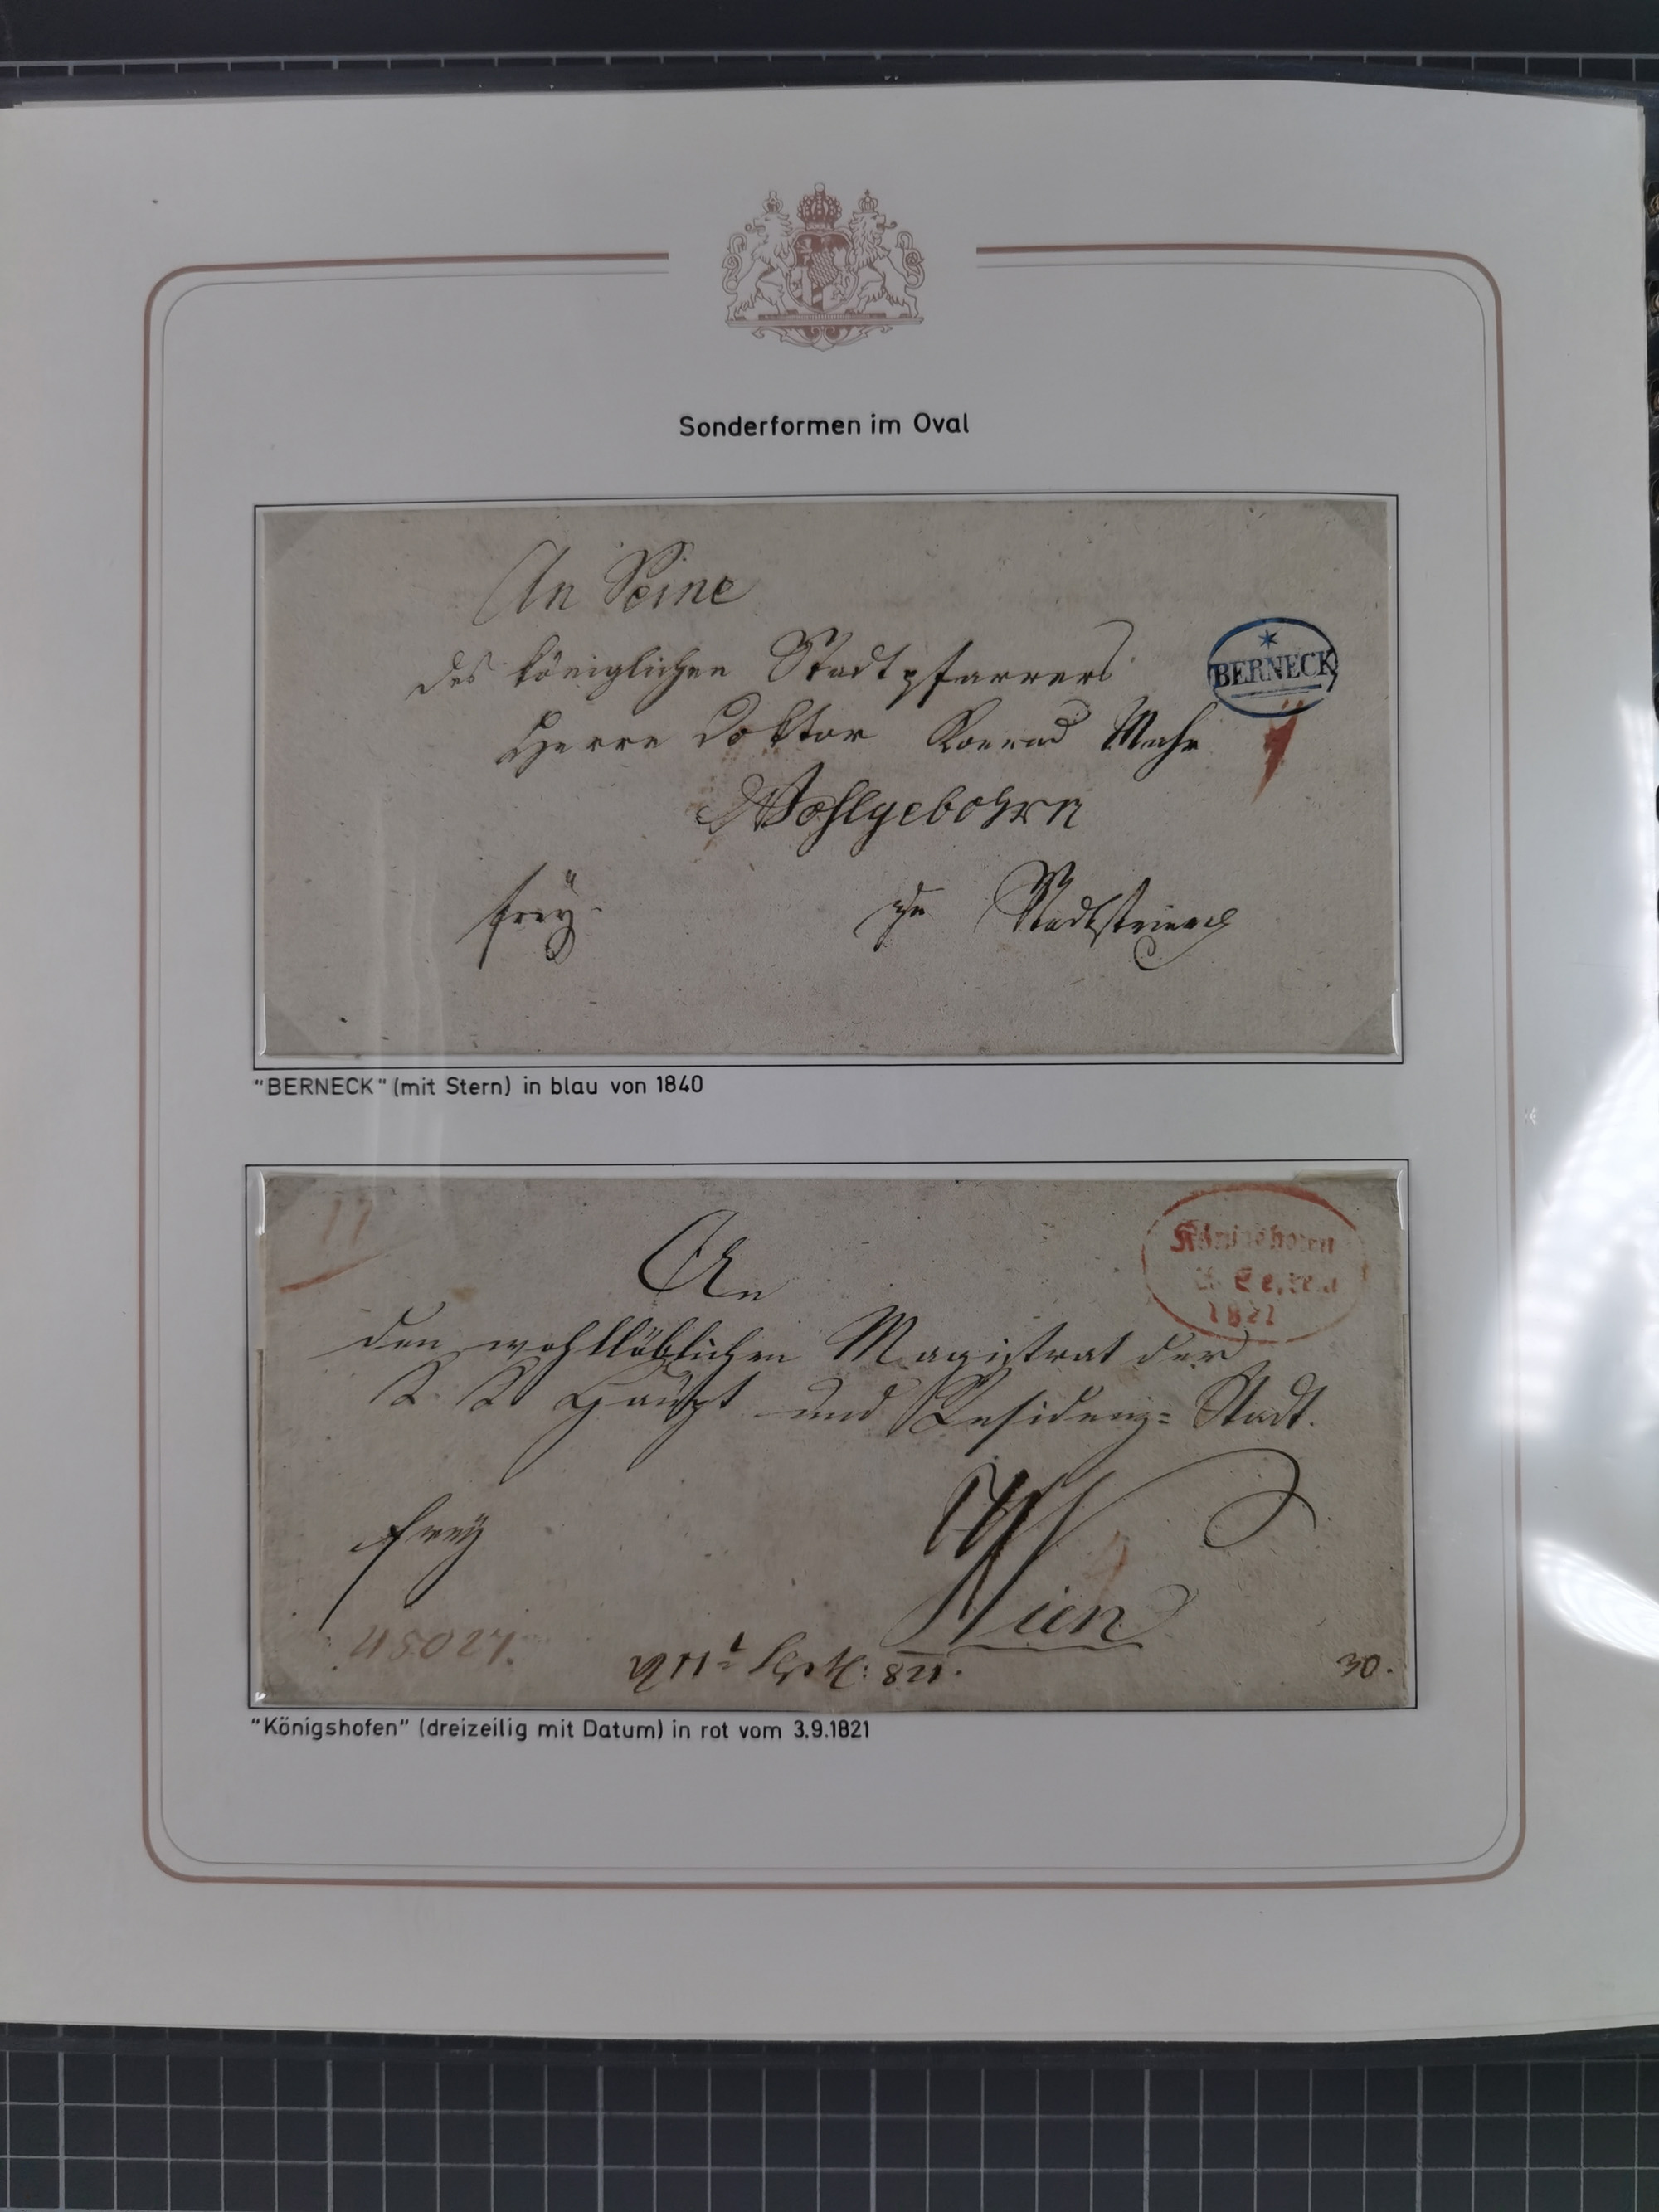 Sonderformen im Oval
An Seine
des königlichen Stadtpfarrers
Herrn Doktor Konrad
Wohlgebohrn
frey.
zu Stadtsteinach
* BERNECK
"BERNECK" (mit Stern) in blau von 1840
11
Königshofen
1821
An
den wohllöblichen Magistrat der
K K Haupt und Residenz= Stadt.
Wien
frey
30.
"Königshofen" (dreizeilig mit Datum) in rot vom 3.9.1821